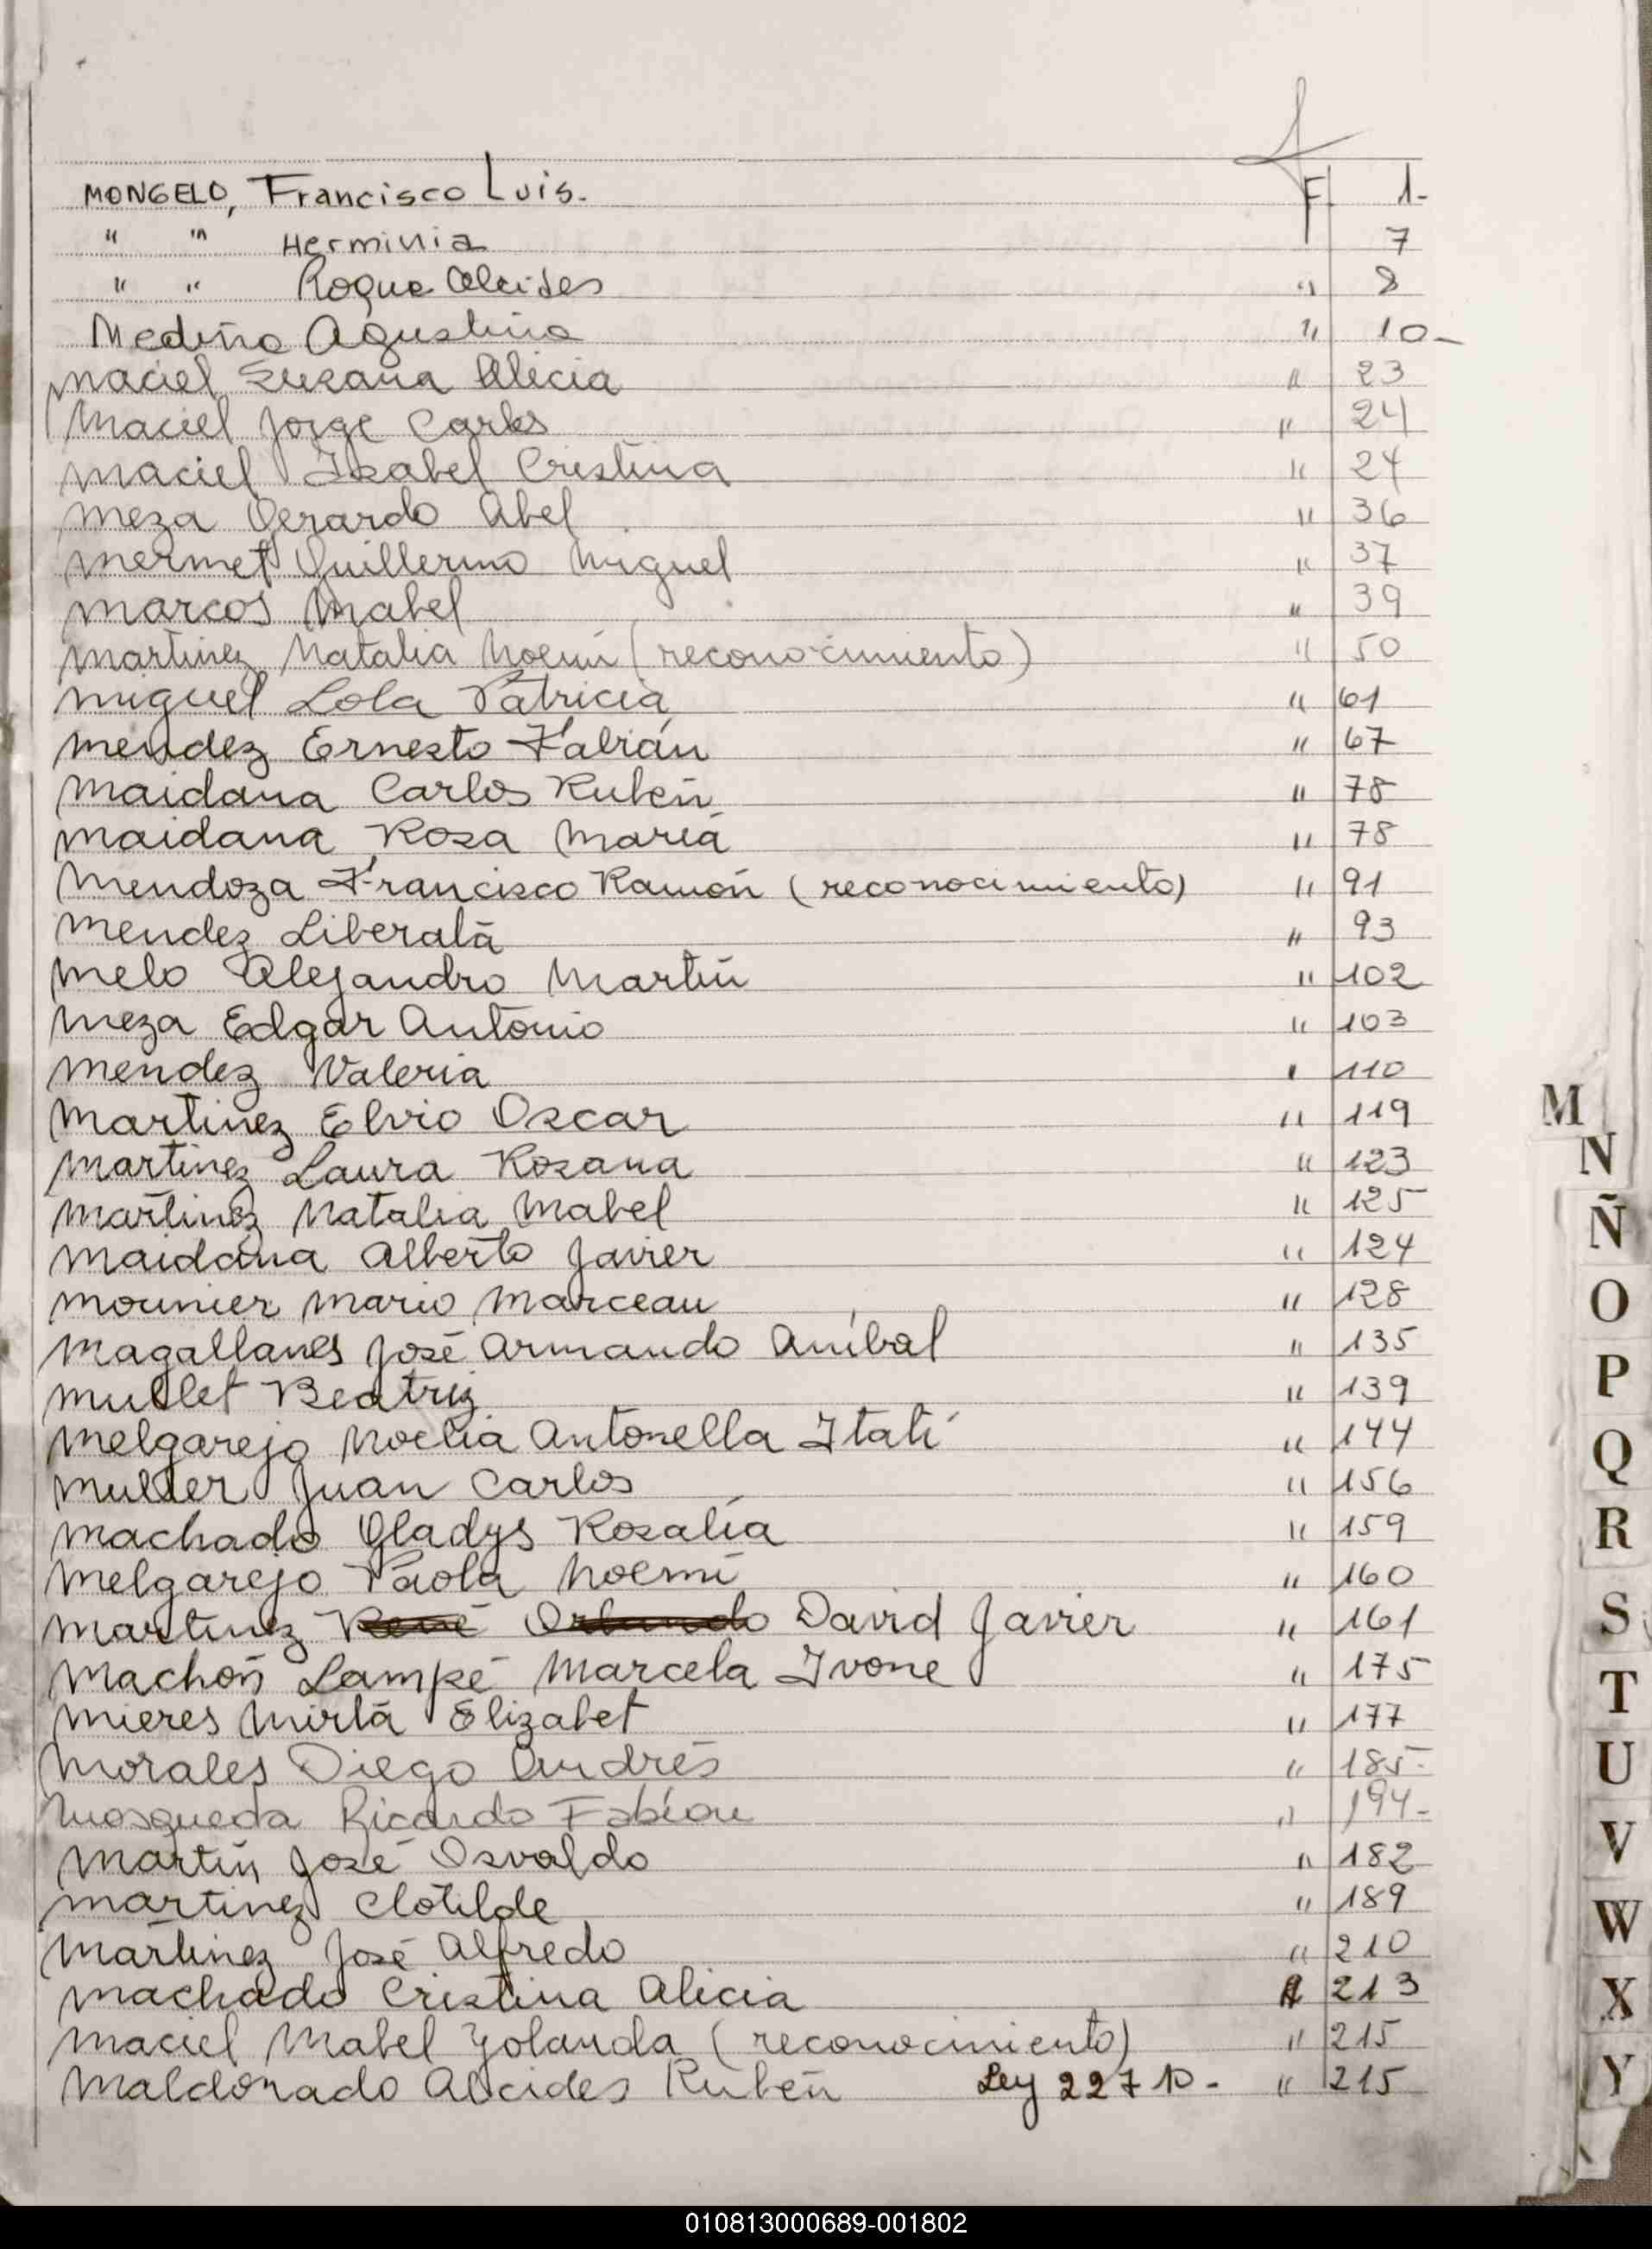 MONGELO, Francisco Luis. F 1-
" " Herminia 7
" " Roque Alcides " 8
Medina Agustina " 10-
Maciel Susana Alicia " 23
Maciel Jorge Carlos " 24
Maciel Isabel Cristina " 24
Meza Gerardo Abel " 36
Mermet Guillermo Miguel " 37
Marcos Mabel " 39
Martinez Natalia Noemí (reconocimiento) " 50
Miguel Lola Patricia " 61
Mendez Ernesto Fabián " 67
Maidana Carlos Rubén " 78
Maidana Rosa María " 78
Mendoza Francisco Ramón (reconocimiento) " 91
Mendez Liberata " 93
Melo Alejandro Martín " 102
Meza Edgar Antonio " 103
Mendez Valeria " 110
Martinez Elvio Oscar " 119
Martinez Laura Rosana " 123
Martinez Natalia Mabel " 125
Maidana Alberto Javier " 124
Mounier Mario Marceau " 128
Magallanes José Armando Aníbal " 135
Mullet Beatriz " 139
Melgarejo Noelia Antonella Itatí " 144
Muller Juan Carlos " 156
Machado Gladys Rosalía " 159
Melgarejo Paola Noemí " 160
Martinez René Orlando David Javier " 161
Machón Lampé Marcela Ivone " 175
Mieres Mirta Elizabet " 177
Morales Diego Andrés " 185-
Mosqueda Ricardo Fabián " 194-
Martín José Osvaldo " 182
Martinez Clotilde " 189
Martinez José Alfredo " 210
Machado Cristina Alicia " 213
Maciel Mabel Yolanda (reconocimiento) " 215
Maldonado Alcides Rubén Ley 22710- " 215
M
N
Ñ
O
P
Q
R
S
T
U
V
W
X
Y
010813000689-001802